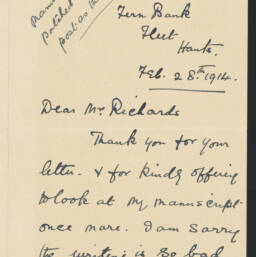 Fern Bank
Fleet
Hants.
Feb. 28th 1914.
Dear Mr Richards
Thank you for your
letter. & for kindly offering
to look at my manuscript
once more. I am sorry
the writing is so bad